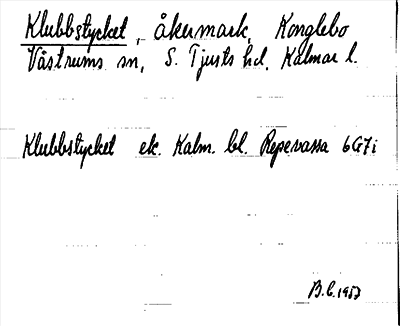 Klubbstycket, åkermark, Konglebo
Västrums sn, S. Tjusts hd, Kalmar l.
Klubbstycket ek. Kalm. bl. Repevassa 6G7i
B.C. 1957